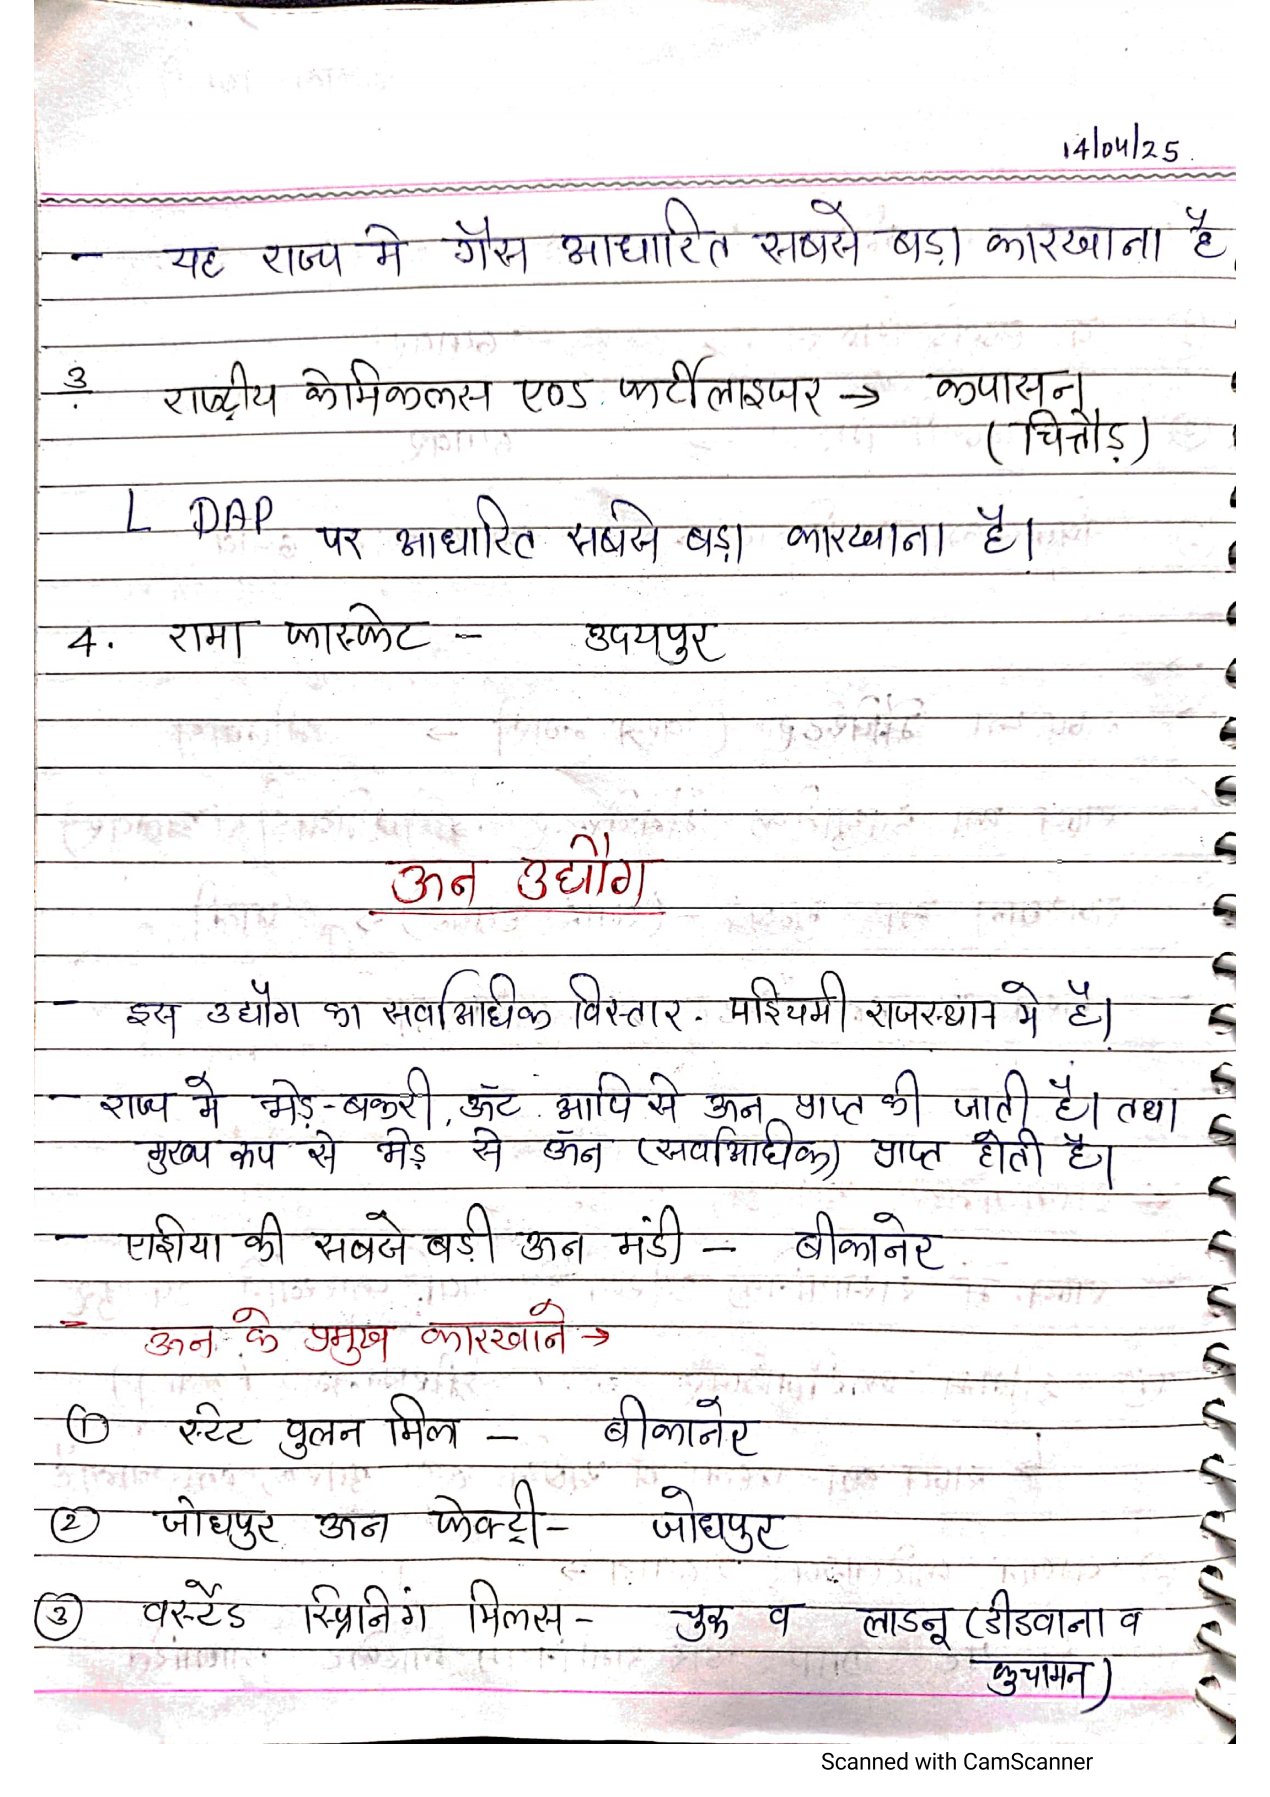 14/04/25
- यह राज्य मे गैस आधारित सबसे बड़ा कारखाना है
3. राष्ट्रीय केमिकलस एण्ड फर्टीलाइजर → कपासन
(चित्तौड़)
L DAP पर आधारित सबसे बड़ा कारखाना है।
4. रामा फास्फेट - उदयपुर
ऊन उद्यौग
- इस उद्यौग का सर्वाधिक विस्तार. पश्चिमी राजस्थान मे है।
- राज्य मे भेड़-बकरी, ऊँट आदि से ऊन प्राप्त की जाती है। तथा
मुख्य रूप से भेड़ से ऊन (सर्वाधिक) प्राप्त होती है।
- एशिया की सबसे बड़ी ऊन मंडी - बीकानेर
= ऊन के प्रमुख कारखाने →
① स्टेट वुलन मिल - बीकानेर
② जोधपुर ऊन फेक्ट्री - जोधपुर
③ वर्स्टेड स्पिनिंग मिलस - चुरू व लाडनू (डीडवाना व
कुचामन)
Scanned with CamScanner